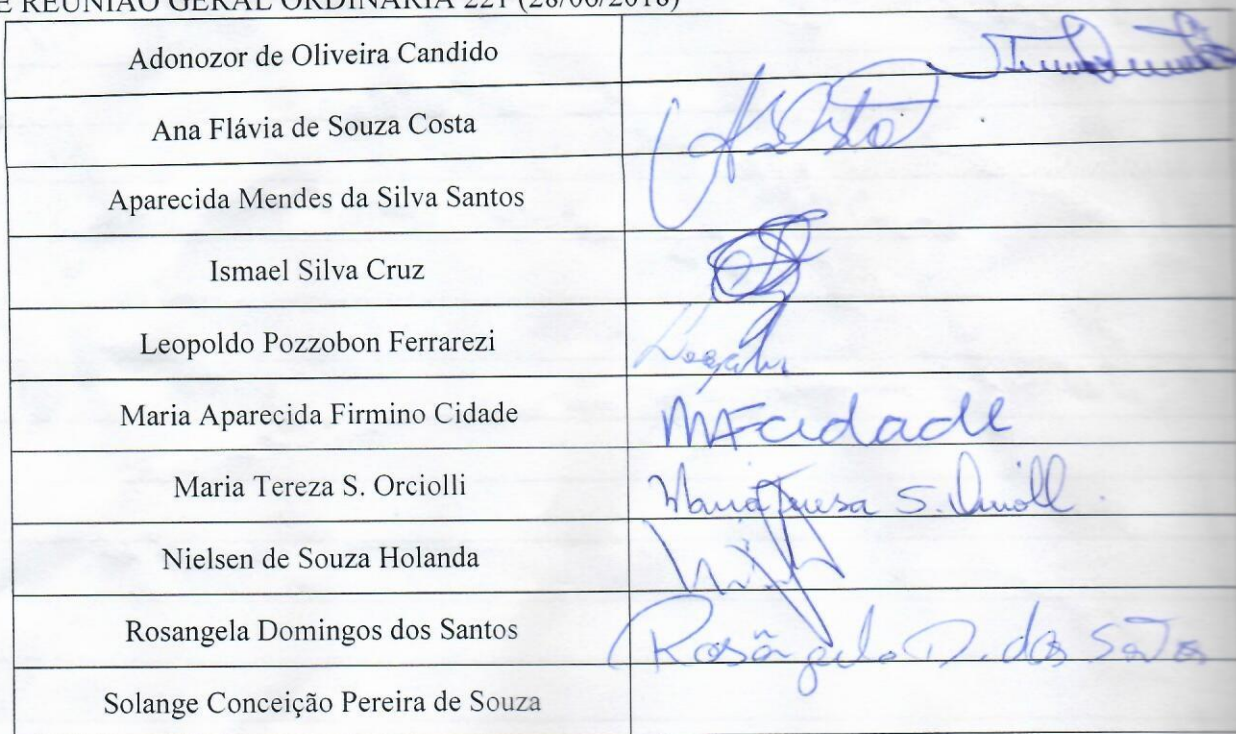 E REUNIÃO GERAL ORDINÁRIA 221 (28/06/2018)
Adonozor de Oliveira Candido
Ana Flávia de Souza Costa
Aparecida Mendes da Silva Santos
Ismael Silva Cruz
Leopoldo Pozzobon Ferrarezi
Maria Aparecida Firmino Cidade MFcidade
Maria Tereza S. Orciolli Maria Teresa S.
Nielsen de Souza Holanda
Rosangela Domingos dos Santos Rosângela D. dos Santos
Solange Conceição Pereira de Souza